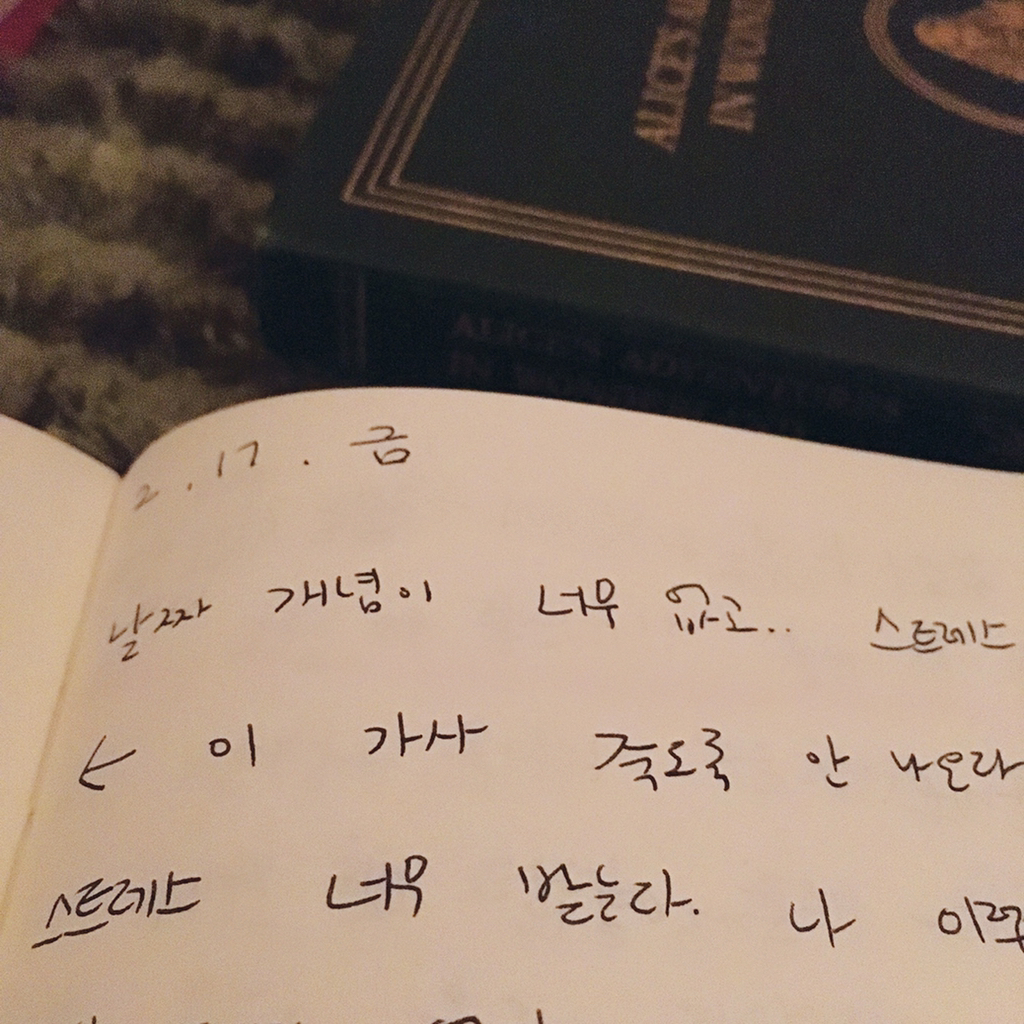 ALICE'S
IN
ALICE'S ADVENTURES
IN
2.17. 금
날짜 개념이 너무 없고.. 스트레스
이 가사 죽도록 안 나오라
스트레스 너무 받는다. 나